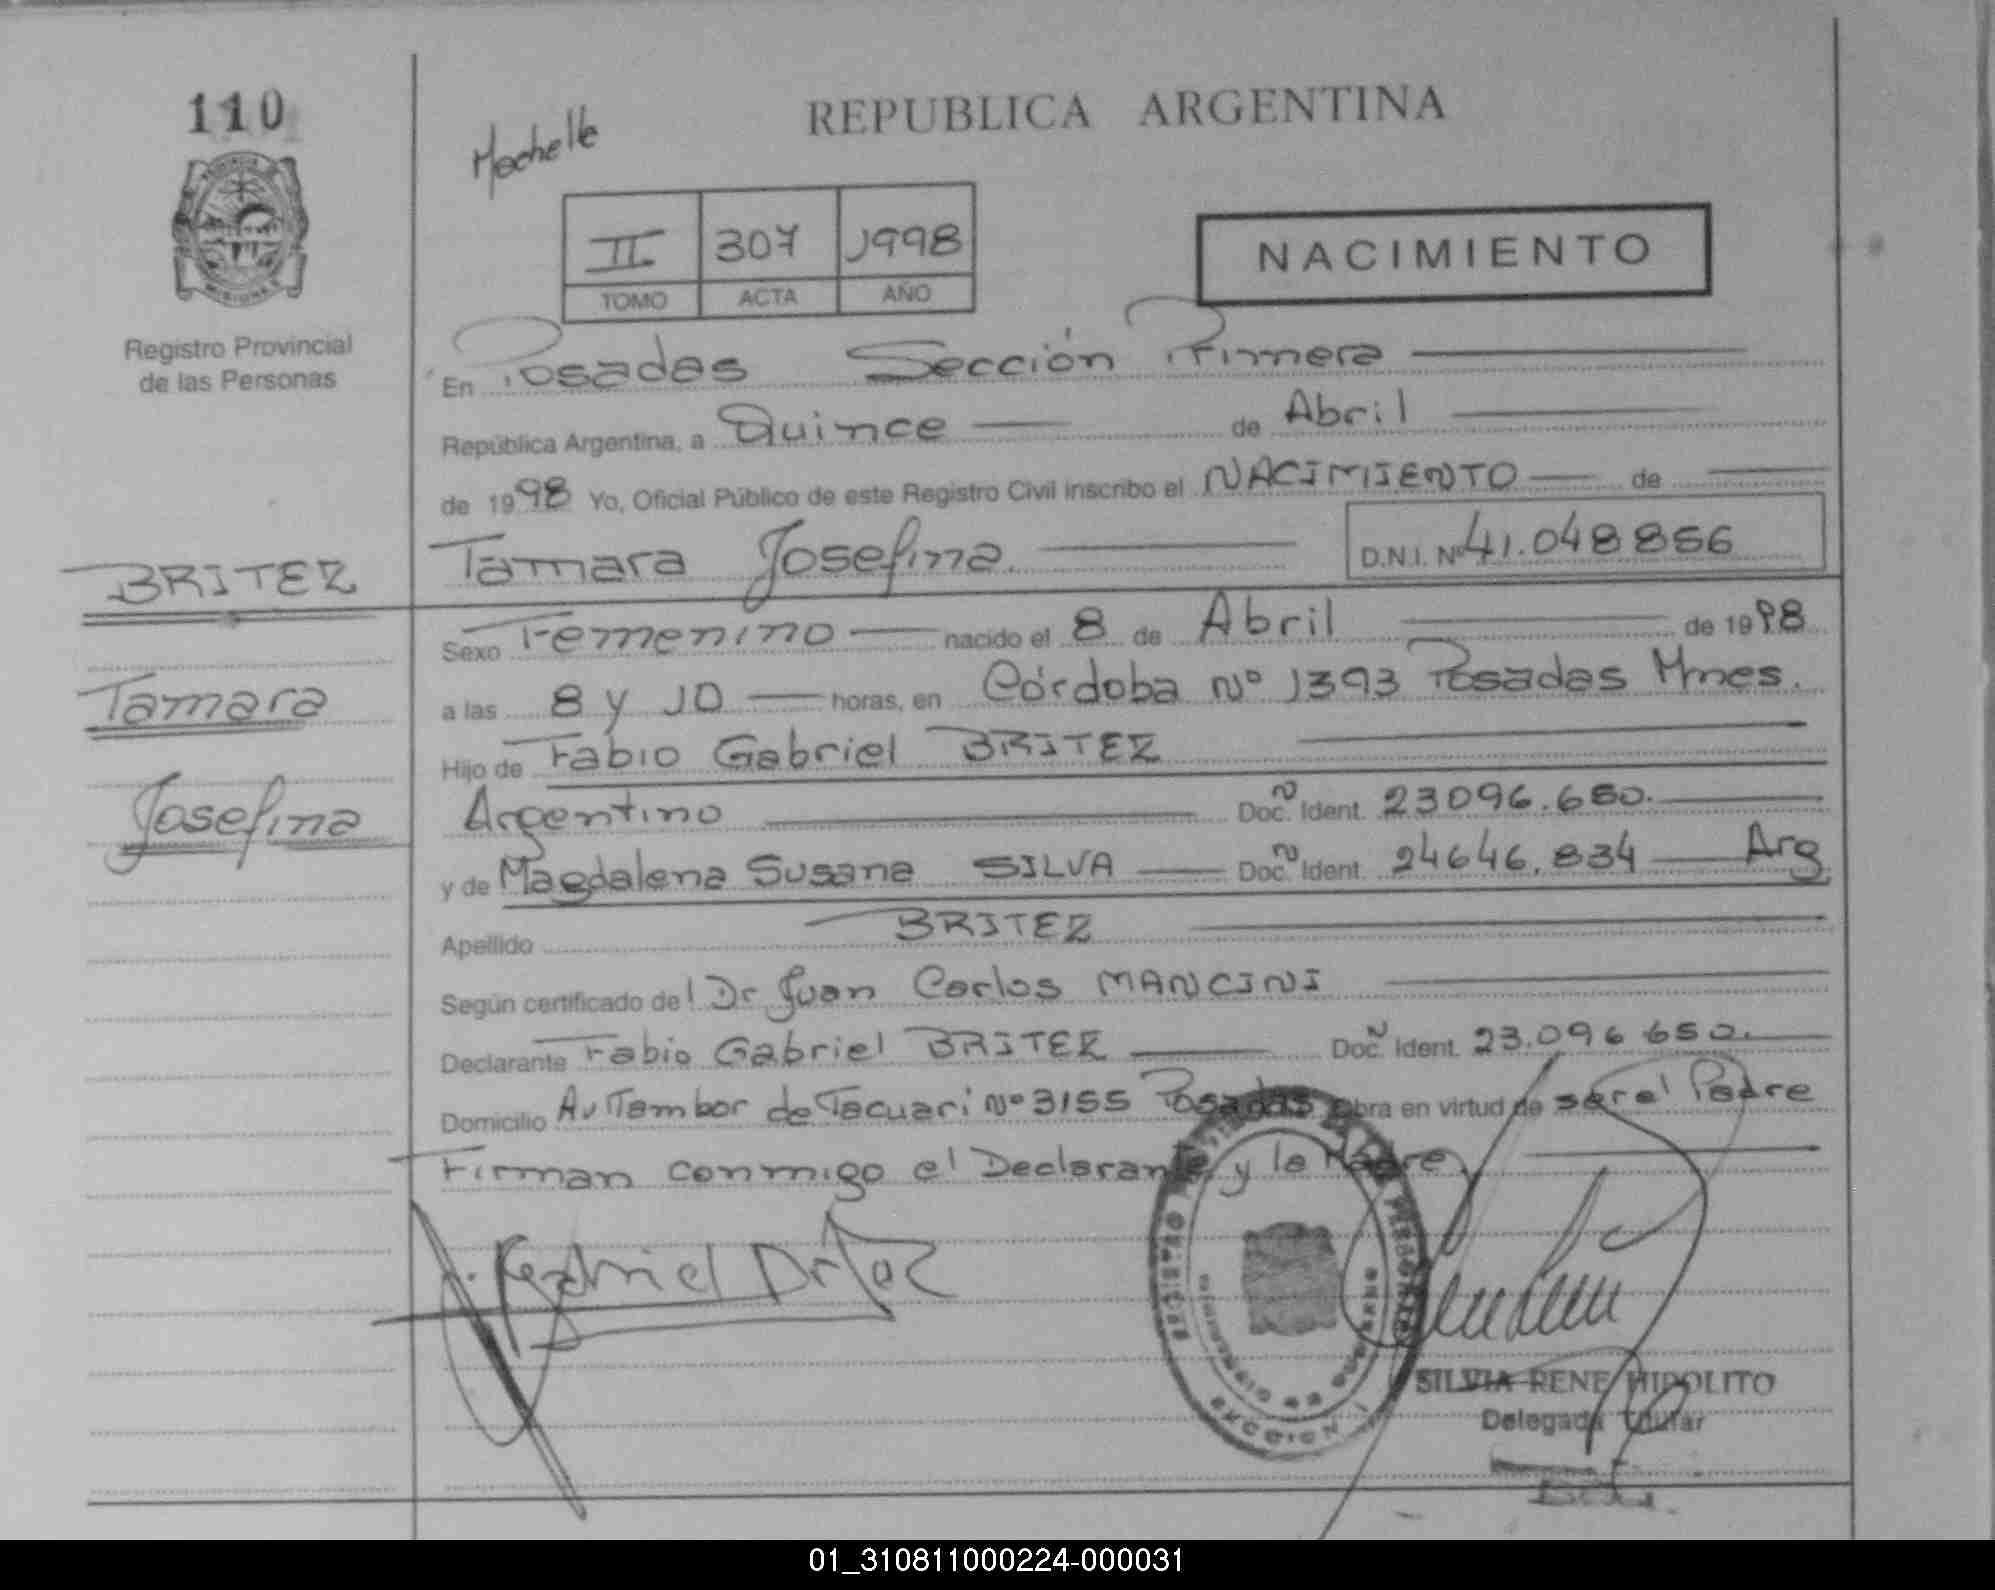 110
Mochelle
REPUBLICA ARGENTINA
II 307 1998
TOMO ACTA AÑO
NACIMIENTO
PROVINCIA
MISIONES
Registro Provincial
de las Personas
En Posadas Sección Primera
República Argentina, a Quince de Abril
de 1998 Yo, Oficial Público de este Registro Civil inscribo el NACIMIENTO de
Tamara Josefina D.N.I. Nº 41.048 856
BRITEZ
Tamara
Josefina
Sexo Femenino nacido el 8 de Abril de 1998
a las 8 y 10 horas, en Córdoba Nº 1393 Posadas Mnes.
Hijo de Fabio Gabriel BRITEZ
Argentino Doc. Ident. 23096.650.
y de Magdalena Susana SILVA Doc. Ident. 24646.834 Arg
Apellido BRITEZ
Según certificado del Dr Juan Carlos MANCINI
Declarante Fabio Gabriel BRITEZ Doc. Ident. 23.096 650.
Domicilio Av Tambor de Tacuari Nº 3155 Posadas Obra en virtud de ser el Padre
Firman conmigo el Declarante y la Madre
SECCION 1
SILVIA RENE HIPOLITO
Delegada Titular
01_310811000224-000031